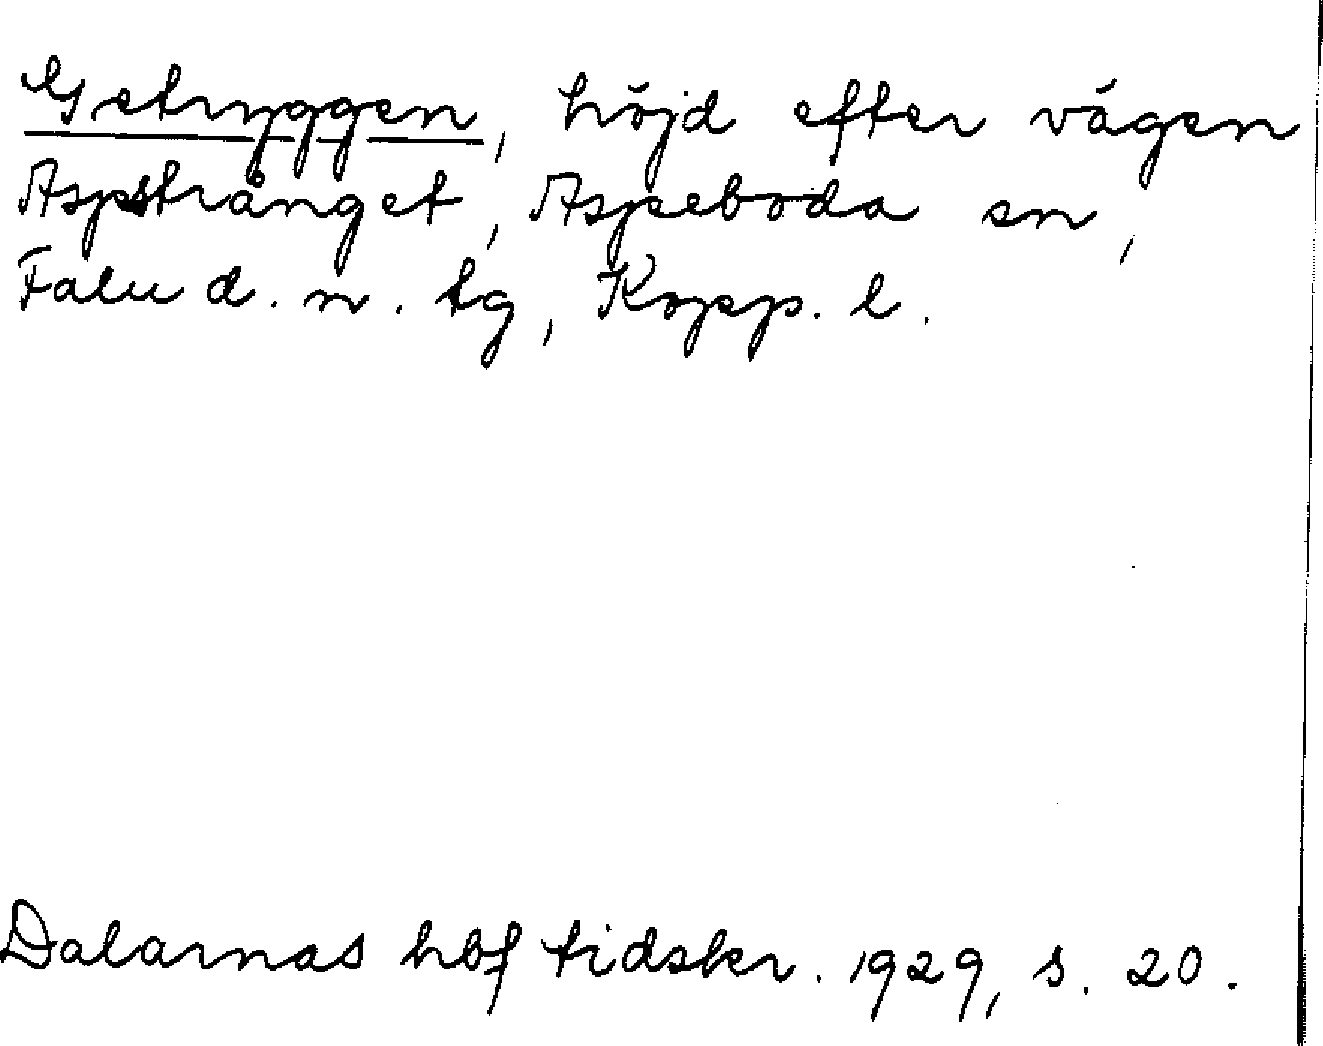 Getryggen, höjd efter vägen
Aspstrånget, Aspeboda sn,
Falu d. n. tg, Kopp. l.
Dalarnas hbf tidskr. 1929, s. 20.